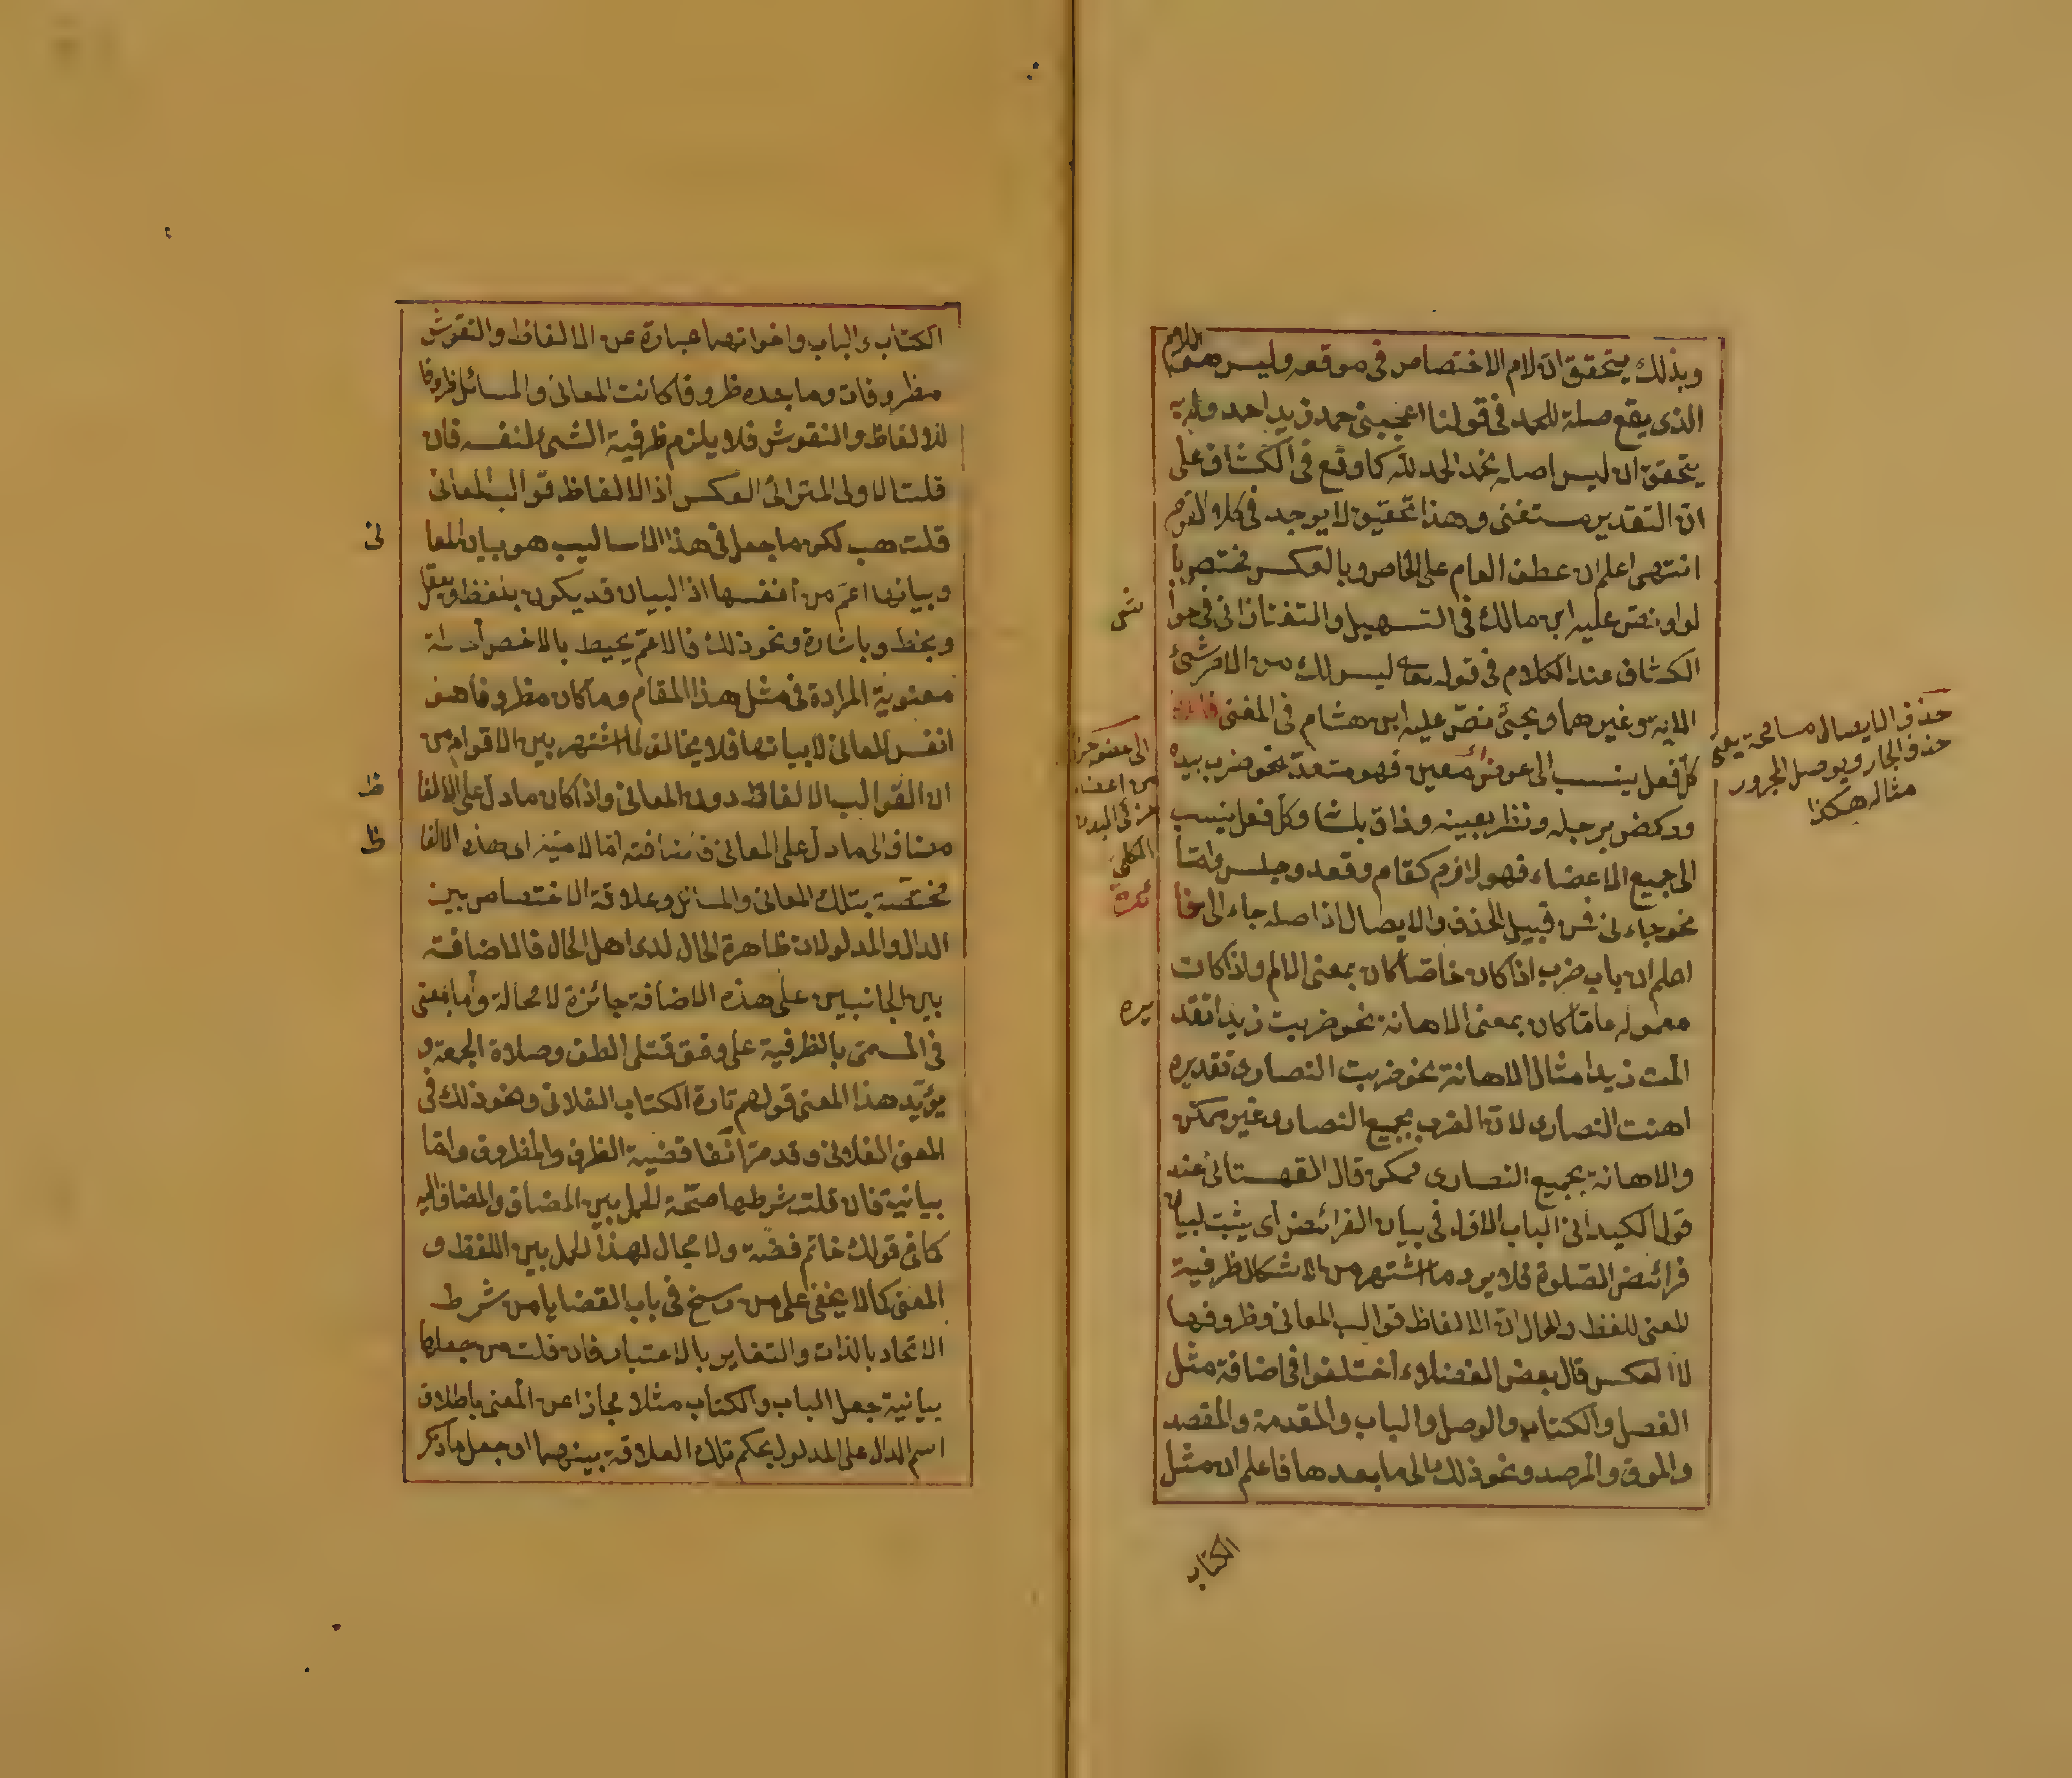 وبذلك يتحقق ان لام الاختصاص فى موقعه وليس هو اللام
الذى يقع صلة للحمد فى قولنا اعجبنى حمد زيد احمد وبه
يتحقق ان ليس اصله نحمد الحمد لله كما وقع فى الكشاف على
ان التقدير مستغنى وهذا تحقيق لا يوجد فى كلام القوم
انتهى اعلم ان عطف العام على الخاص وبالعكس مختص با
لواو نص عليه ابن مالك فى التسهيل والتفتازانى فى حوا
شى
الكشاف عند الكلام فى قوله تعالى ليس لك من الامر شئ
الاية وغيرهما ويجئ نص عليه ابن هشام فى المغنى
كل فعل ينسب الى عوض معين فهو متعد نحو ضرب بيده
وركض برجله ونظر بعينه وذاق بلسا وكل فعل ينسب
الى جميع الاعضاء فهو لازم كقام وقعد وجلس واما
نحو جاءنى فمن قبيل الحذف والايصال اذ اصله جاء الى
اعلم ان باب ضرب اذا كان خاصا كان بمعنى الالم واذا كان
معموله عاما كان بمعنى الاهانة نحو ضربت زيدا تقد
يره
المت زيدا مثال الاهانة نحو ضربت النصارى تقديره
اهنت النصارى لان الضرب بجميع النصارى غير ممكن
والاهانة بجميع النصارى ممكن قال القهستانى عند
قول الكيدانى الباب الاول فى بيان الفرائض أى يثبت لبيان
فرائض الصلوة فلا يرد ما اشتهر من الاشكال ظرفية
للمعنى للفظ والحال ان الالفاظ قوالب المعانى وظروفها
لا العكس قال بعض الفضلاء اختلفوا فى اضافة مثل
الفصل والكتاب والوصل والباب والمقدمة والمقصد
والموقف والمرصد ونحو ذلك الى ما بعدها فاعلم ان مثل
الكتاب
حذف الايصال مسامحة يعنى
حذف الجار ويوصل المجرور
مثاله هكذا
الى عضو
من اعضاء
البدن
الكتاب والباب واخواتهما عبارة عن الالفاظ والنقوش
مظروفات وما بعده ظروفا كانت المعانى والمسائل ظروفا
للالفاظ والنقوش فلا يلزم ظرفية الشئ لنفسه فان
قلت الاولى المتراائ العكس اذ الالفاظ قوالب المعانى
قلت هب لكن ما جعل فى هذا الاساليب هو بيان المعا
نى
وبيانها اعم من انفسها اذ البيان قد يكون بلفظ وبعقل
وبخط وباشارة ونحو ذلك فالاعم يحيط بالاخص احاطة
معنوية المرادة فى مثل هذا المقام وما كان مظروفا هو
انفس المعانى لا بيانها فلا يخالف لما اشتهر بين الاقوام من
ان القوالب الالفاظ دون المعانى واذا كان ما دل على الالفا
ظ
مضاف الى ما دل على المعانى فاضافته اما لامية اى هذه الالفا
ظ
مختصة بتلك المعانى والمسائل وعلاقة الاختصاص بين
الدال والمدلولات ظاهرة الحال لدى اهل الحال فالاضافة
بين الجانبين على هذه الاضافة جائزة لا محالة واما بمعنى
فى المسمى بالظرفية على وفق قتلى الطف وصلاة الجمعة و
يؤيد هذا المعنى قولهم تارة الكتاب الفلانى ونحو ذلك فى
المعنى الفلانى وقد مر آنفا قضية الظرف والمظروف واما
بيانية فان قلت شرطها صحة الحمل بين المضاف والمضاف اليه
كما فى قولك خاتم فضة ولا مجال لهذا الحمل بين اللفظ و
المعنى كما لا يخفى على من رسخ فى باب القضايا من شرط
الاتحاد بالذات والتغاير بالاعتبار فان قلت من جعلها
بيانية جعل الباب والكتاب مثلا مجازا عن المعنى باطلاق
اسم الدال على المدلول بحكم تلك العلاقة بينهما او جعل ما ذكر